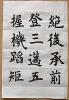 絕後承前
登三邁五
握機蹈矩